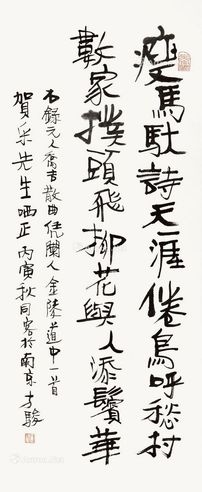 瘦馬馱詩天涯倦鳥呼愁村
數家撲頭飛柳花與人添鬢華
右錄元人喬吉散曲凭闌人金陵道中一首
賀年先生哂正丙寅秋同客於南京方駿